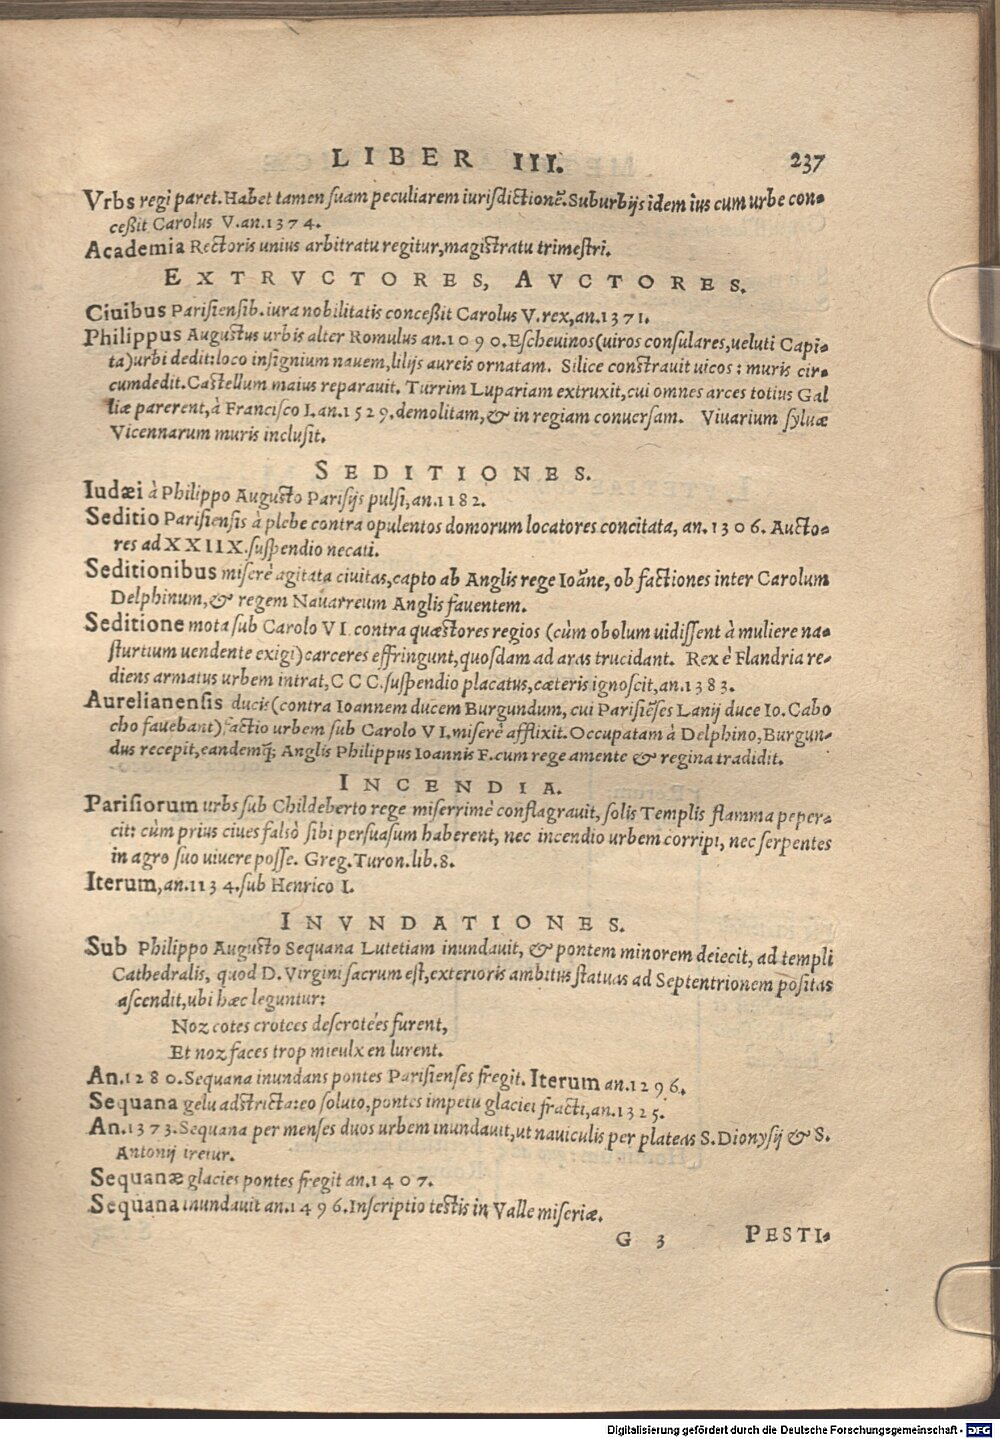 LIBER III. 237
Vrbs regi paret. Habet tamen suam peculiarem iurisdictionē. Suburbijs idem ius cum urbe con-
ceßit Carolus V. an. 1374.
Academia Rectoris unius arbitratu regitur, magistratu trimestri.
EXTRVCTORES, AVCTORES.
Ciuibus Parisiensib. iura nobilitatis conceßit Carolus V. rex, an. 1371.
Philippus Augustus urbis alter Romulus an. 1090. Escheuinos (uiros consulares, ueluti Capi-
ta) urbi dedit: loco insignium nauem, lilijs aureis ornatam. Silice constrauit uicos: muris cir-
cumdedit. Castellum maius reparauit. Turrim Lupariam extruxit, cui omnes arces totius Gal
liæ parerent, à Francisco I. an. 1529. demolitam, & in regiam conuersam. Viuarium syluæ
Vicennarum muris inclusit.
SEDITIONES.
Iudæi à Philippo Augusto Parisijs pulsi, an. 1182.
Seditio Parisiensis à plebe contra opulentos domorum locatores concitata, an. 1306. Aucto-
res ad XXIIX. suspendio necati.
Seditionibus miserè agitata ciuitas, capto ab Anglis rege Ioāne, ob factiones inter Carolum
Delphinum, & regem Nauarreum Anglis fauentem.
Seditione mota sub Carolo VI contra quæstores regios (cùm obolum uidissent à muliere na-
sturtium uendente exigi) carceres effringunt, quosdam ad aras trucidant. Rex è Flandria re-
diens armatus urbem intrat, CCC. suspendio placatus, cæteris ignoscit, an. 1383.
Aurelianensis ducis (contra Ioannem ducem Burgundum, cui Parisiēses Lanij duce Io. Cabo
cho fauebant) factio urbem sub Carolo VI. miserè afflixit. Occupatam à Delphino, Burgun-
dus recepit, eandemq́; Anglis Philippus Ioannis F. cum rege amente & regina tradidit.
INCENDIA.
Parisiorum urbs sub Childeberto rege miserrimè conflagrauit, solis Templis flamma peper-
cit: cùm prius ciues falsò sibi persuasum haberent, nec incendio urbem corripi, nec serpentes
in agro suo uiuere posse. Greg. Turon. lib. 8.
Iterum, an. 1134. sub Henrico I.
INVNDATIONES.
Sub Philippo Augusto Sequana Lutetiam inundauit, & pontem minorem deiecit, ad templi
Cathedralis, quod D. Virgini sacrum est, exterioris ambitus statuas ad Septentrionem positas
ascendit, ubi hæc leguntur:
Noz cotes crotees descrotées furent,
Et noz faces trop mieulx en lurent.
An. 1280. Sequana inundans pontes Parisienses fregit. Iterum an. 1296.
Sequana gelu adstricta: eo soluto, pontes impetu glaciei fracti, an. 1325.
An. 1373. Sequana per menses duos urbem inundauit, ut nauiculis per plateas S. Dionysij & S.
Antonij iretur.
Sequanæ glacies pontes fregit an. 1407.
Sequana inundauit an. 1496. Inscriptio testis in Valle miseriæ.
G 3 PESTI-
Digitalisierung gefördert durch die Deutsche Forschungsgemeinschaft - DFG